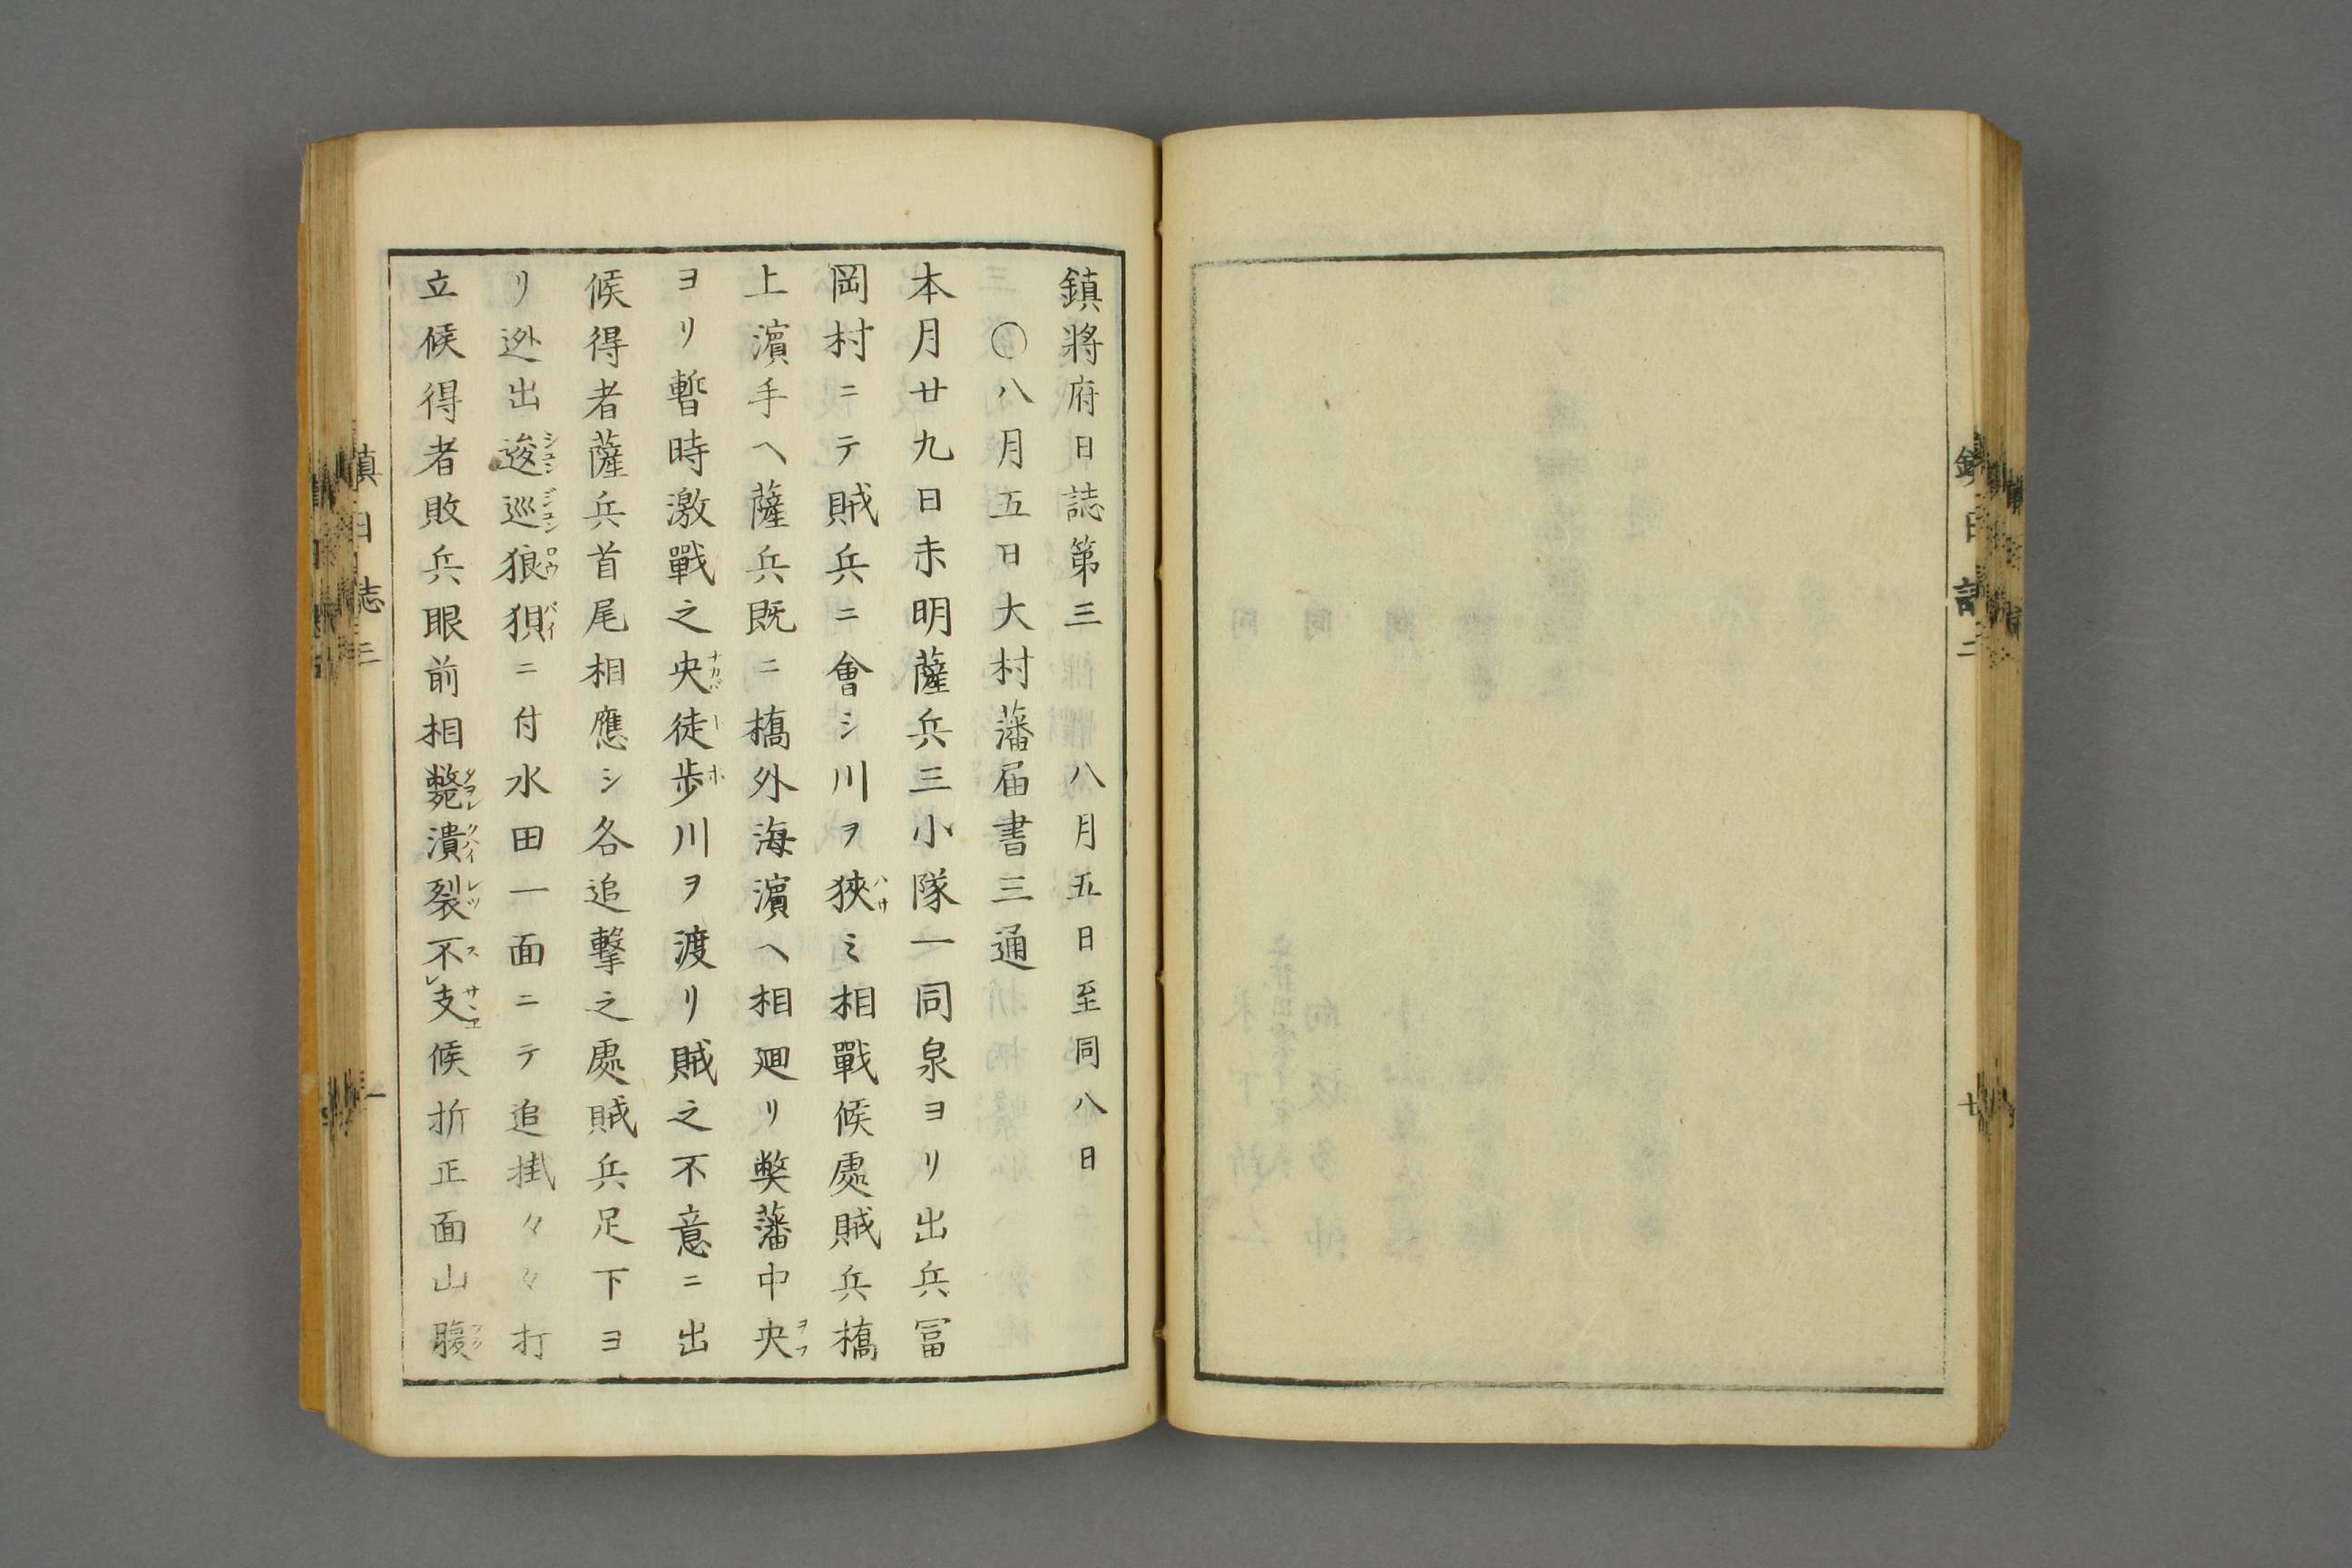 鎮將府日誌第三　八月五日至同八日
〇八月五日大村藩届書三通
本月廿九日未明薩兵三小隊一同泉ヨリ出兵冨
岡村ニテ賊兵ニ會シ川ヲ狹ミ相戰候處賊兵橋
上濵手ヘ薩兵既ニ橋外海濵ヘ相廻リ弊藩中央
ヨリ暫時激戰之央徒歩川ヲ渡リ賊之不意ニ出
候得者薩兵首尾相應シ各追撃之處賊兵足下ヨ
リ迯出逡巡狼狽ニ付水田一面ニテ追掛々々打
立候得者敗兵眼前相斃潰裂不レ支候折正面山腹
鎮日誌三
一